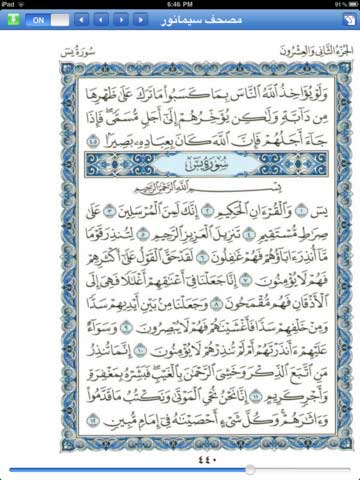 iPad 6:46 PM 91%
ON مصحف سيمانور
سُورَةُ يسٓ الجُزْءُ الثَّانِي وَالعِشْرُونَ
وَلَوْ يُؤَاخِذُ ٱللَّهُ ٱلنَّاسَ بِمَا كَسَبُوا۟ مَا تَرَكَ عَلَىٰ ظَهْرِهَا
مِن دَآبَّةٍ وَلَٰكِن يُؤَخِّرُهُمْ إِلَىٰٓ أَجَلٍ مُّسَمًّى ۖ فَإِذَا
جَآءَ أَجَلُهُمْ فَإِنَّ ٱللَّهَ كَانَ بِعِبَادِهِۦ بَصِيرًۢا ٤٥
سُورَةُ يسٓ
بِسْمِ ٱللَّهِ ٱلرَّحْمَٰنِ ٱلرَّحِيمِ
يسٓ ١ وَٱلْقُرْءَانِ ٱلْحَكِيمِ ٢ إِنَّكَ لَمِنَ ٱلْمُرْسَلِينَ ٣ عَلَىٰ
صِرَٰطٍ مُّسْتَقِيمٍ ٤ تَنزِيلَ ٱلْعَزِيزِ ٱلرَّحِيمِ ٥ لِتُنذِرَ قَوْمًا
مَّآ أُنذِرَ ءَابَآؤُهُمْ فَهُمْ غَٰفِلُونَ ٦ لَقَدْ حَقَّ ٱلْقَوْلُ عَلَىٰٓ أَكْثَرِهِمْ
فَهُمْ لَا يُؤْمِنُونَ ٧ إِنَّا جَعَلْنَا فِىٓ أَعْنَٰقِهِمْ أَغْلَٰلًا فَهِىَ إِلَى
ٱلْأَذْقَانِ فَهُم مُّقْمَحُونَ ٨ وَجَعَلْنَا مِنۢ بَيْنِ أَيْدِيهِمْ سَدًّا
وَمِنْ خَلْفِهِمْ سَدًّا فَأَغْشَيْنَٰهُمْ فَهُمْ لَا يُبْصِرُونَ ٩ وَسَوَآءٌ
عَلَيْهِمْ ءَأَنذَرْتَهُمْ أَمْ لَمْ تُنذِرْهُمْ لَا يُؤْمِنُونَ ١٠ إِنَّمَا تُنذِرُ
مَنِ ٱتَّبَعَ ٱلذِّكْرَ وَخَشِىَ ٱلرَّحْمَٰنَ بِٱلْغَيْبِ ۖ فَبَشِّرْهُ بِمَغْفِرَةٍ
وَأَجْرٍ كَرِيمٍ ١١ إِنَّا نَحْنُ نُحْىِ ٱلْمَوْتَىٰ وَنَكْتُبُ مَا قَدَّمُوا۟
وَءَاثَٰرَهُمْ ۚ وَكُلَّ شَىْءٍ أَحْصَيْنَٰهُ فِىٓ إِمَامٍ مُّبِينٍ ١٢
٤٤٠